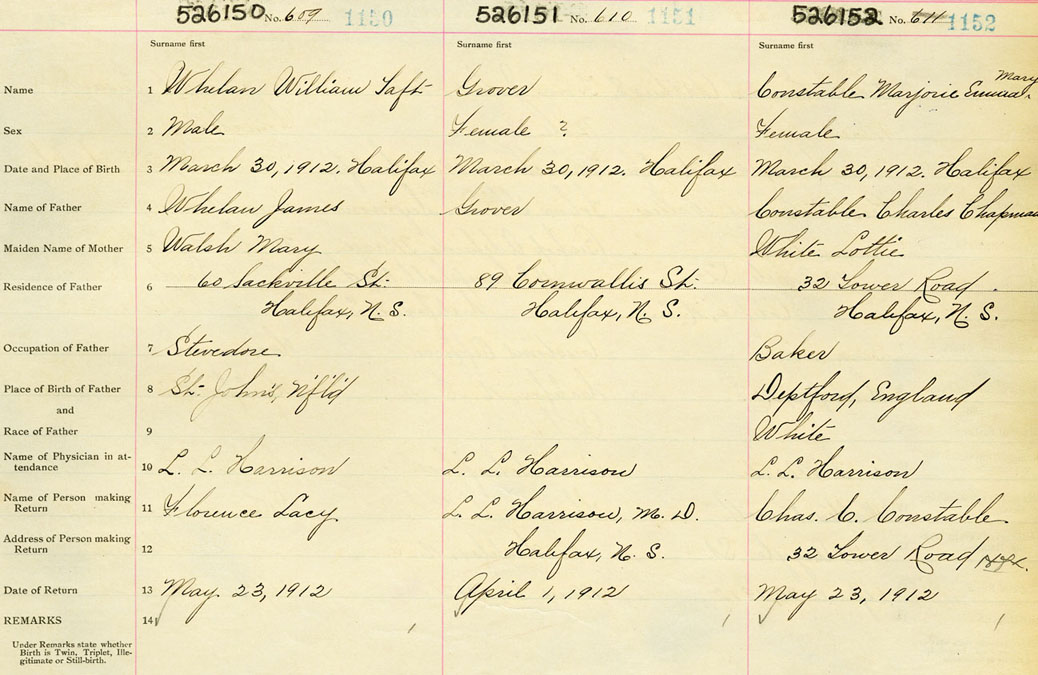 526150 No. 609 1150 526151 No. 610 1151 526152 No. 611 1152
Surname first Surname first Surname first
Mary
Name 1 Whelan William Taft Grover Constable Marjorie Emma
Sex 2 Male Female ? Female
Date and Place of Birth 3 March 30, 1912. Halifax March 30, 1912. Halifax March 30, 1912. Halifax
Name of Father 4 Whelan James Grover Constable Charles Chapman
Maiden Name of Mother 5 Walsh Mary White Lottie
Residence of Father 6 60 Sackville St. 89 Cornwallis St. 32 Tower Road.
Halifax, N. S. Halifax, N. S. Halifax, N. S.
Occupation of Father 7 Stevedore Baker
Place of Birth of Father 8 St. John's, Nf'l'd Deptford, England
and
Race of Father 9 White
Name of Physician in at-
tendance 10 L. L. Harrison L. L. Harrison L. L. Harrison
Name of Person making
Return 11 Florence Lacy L. L. Harrison, M. D. Chas. C. Constable
Address of Person making
Return 12 Halifax, N. S. 32 Tower Road Hfx.
Date of Return 13 May 23, 1912 April 1, 1912 May 23, 1912
REMARKS 14
Under Remarks state whether
Birth is Twin, Triplet, Ille-
gitimate or Still-birth.